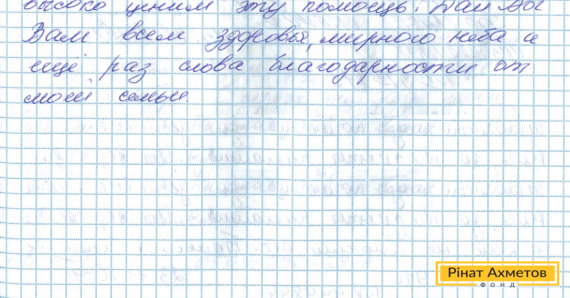 высоко ценим эту помощь. Дай Бог
Вам всем здоровья, мирного неба и
ещё раз слова благодарности от
моей семьи
Рінат Ахметов
ФОНД